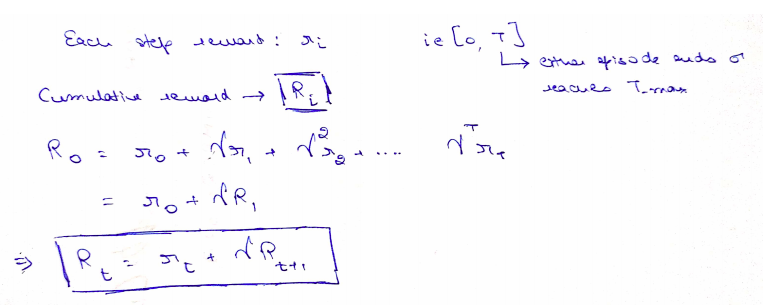 Each step reward : r_i i ∈ [0, T]
↳ either episode ends or
reaches T_max
Cumulative reward → R_i
R_0 = r_0 + γr_1 + γ^2 r_2 + .... γ^T r_T
= r_0 + γR_1
⇒ R_t = r_t + γR_{t+1}